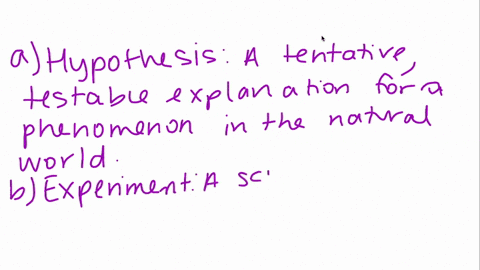 a) Hypothesis: A tentative,
testable explanation for a
phenomenon in the natural
world.
b) Experiment: A sci